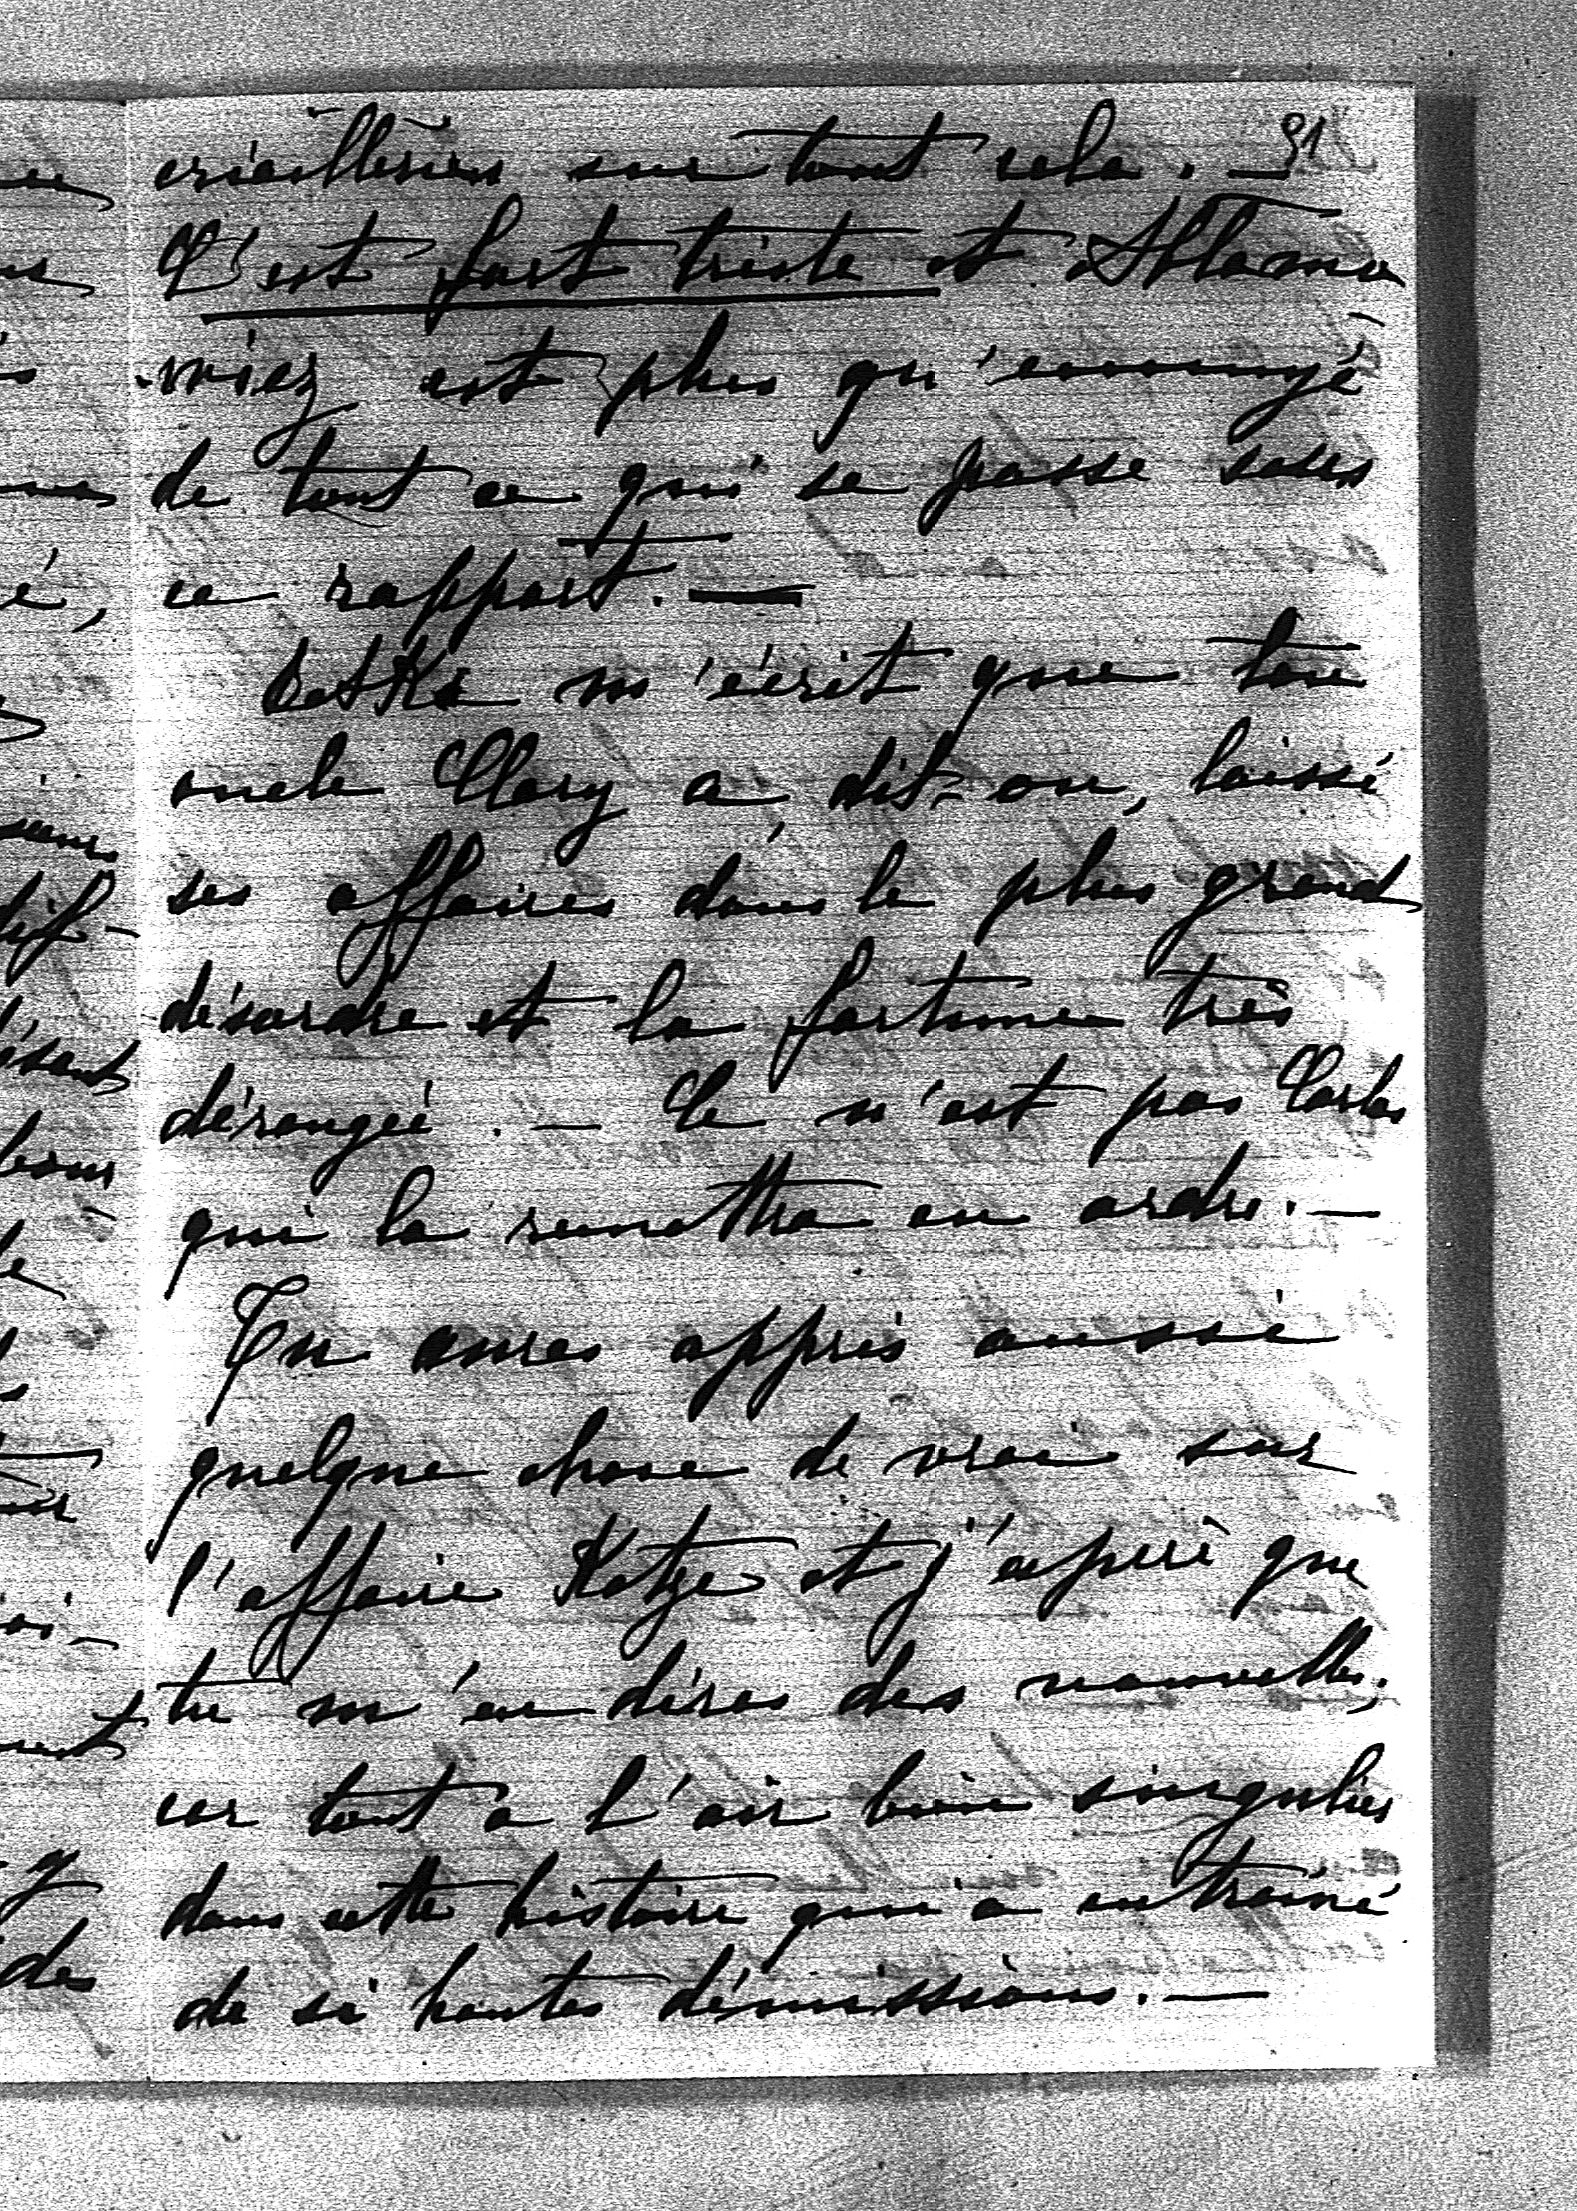 91
criailleries sur tout cela. —
C'est fort triste et Ablamo
-wiez est plus qu'ennuyé
de tout ce qui se passe sous
ce rapport. —
m'écrit que ton
oncle Clary a dit-on, laissé
ses affaires dans le plus grand
désordre et la fortune très
dérangée. — Ce n'est pas Carlos
qui la remettra en ordre. —
Tu auras appris aussi
quelque chose de vrai sur
l'affaire Kotze et j'espère que
tu m'en diras des nouvelles,
car tout a l'air bien singulier
dans cette histoire qui a entraîné
de si hautes démissions. —